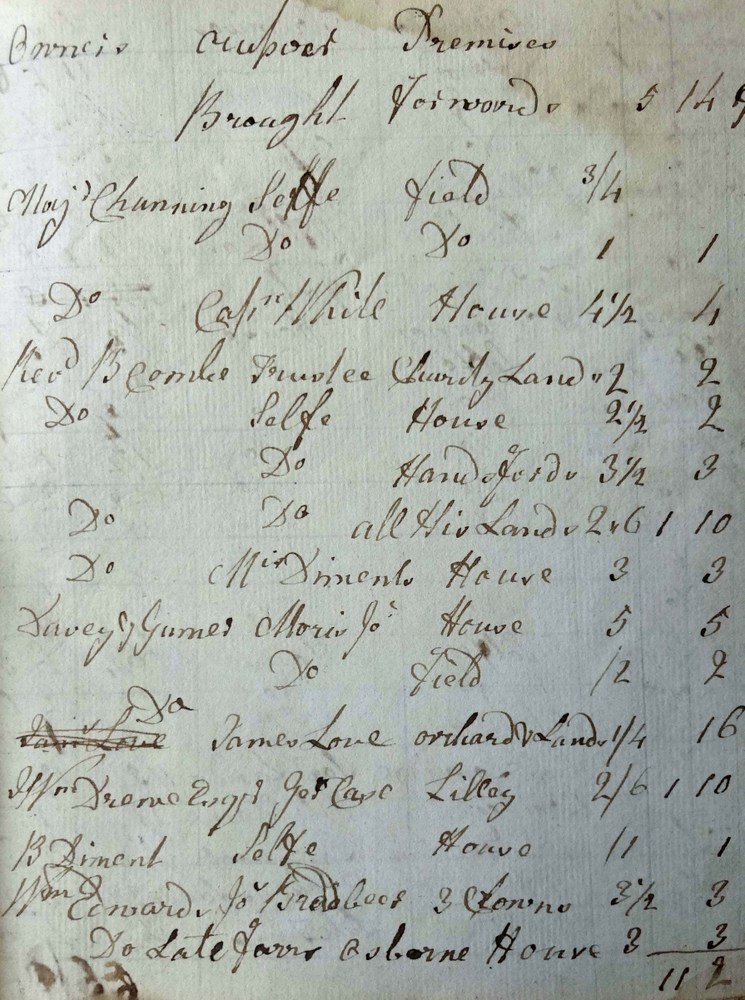 Owners Ocupoer Premises
Brought Forwards 5 14
Majr Channing Selfe field 3/4
Do Do 1 1
Do Captn White House 4 1/2 4
Revd B Combe Trustee Charity Lands 2 2
Do Selfe House 2 1/2 2
Do Handsfords 3 1/2 3
Do Do all His Lands 2s6 1 10
Do Mrs Diments House 3 3
Davey Gumer Moris Jos House 5 5
Do field /2 2
Do James Love orchard & Lands 1/4 16
Wm Drewe Esqr Case Lilley 2/6 1 10
B Diment Selfe House /1 1
Wm Edwards Jos Bradbeer 3 Crowns 3 1/2 3
Do Late Farrs Osborne House 3 3
11 2